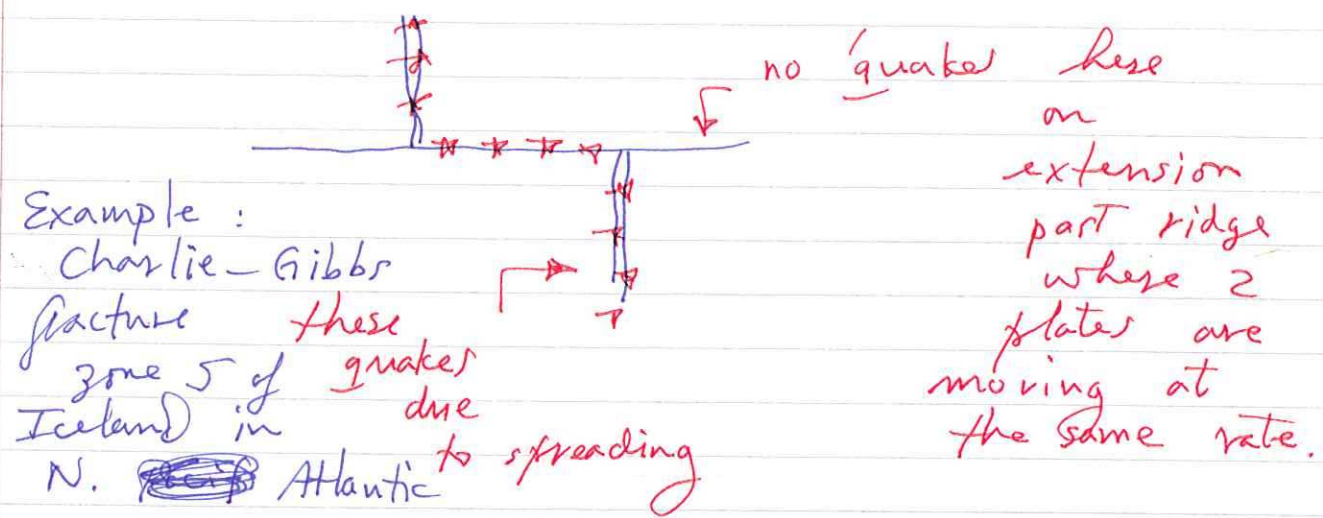 no quakes here
on
extension
part ridge
where 2
plates are
moving at
the same rate.
Example :
Charlie-Gibbs
fracture
zone S of
Iceland in
N. Atlantic
these
quakes
due
to spreading